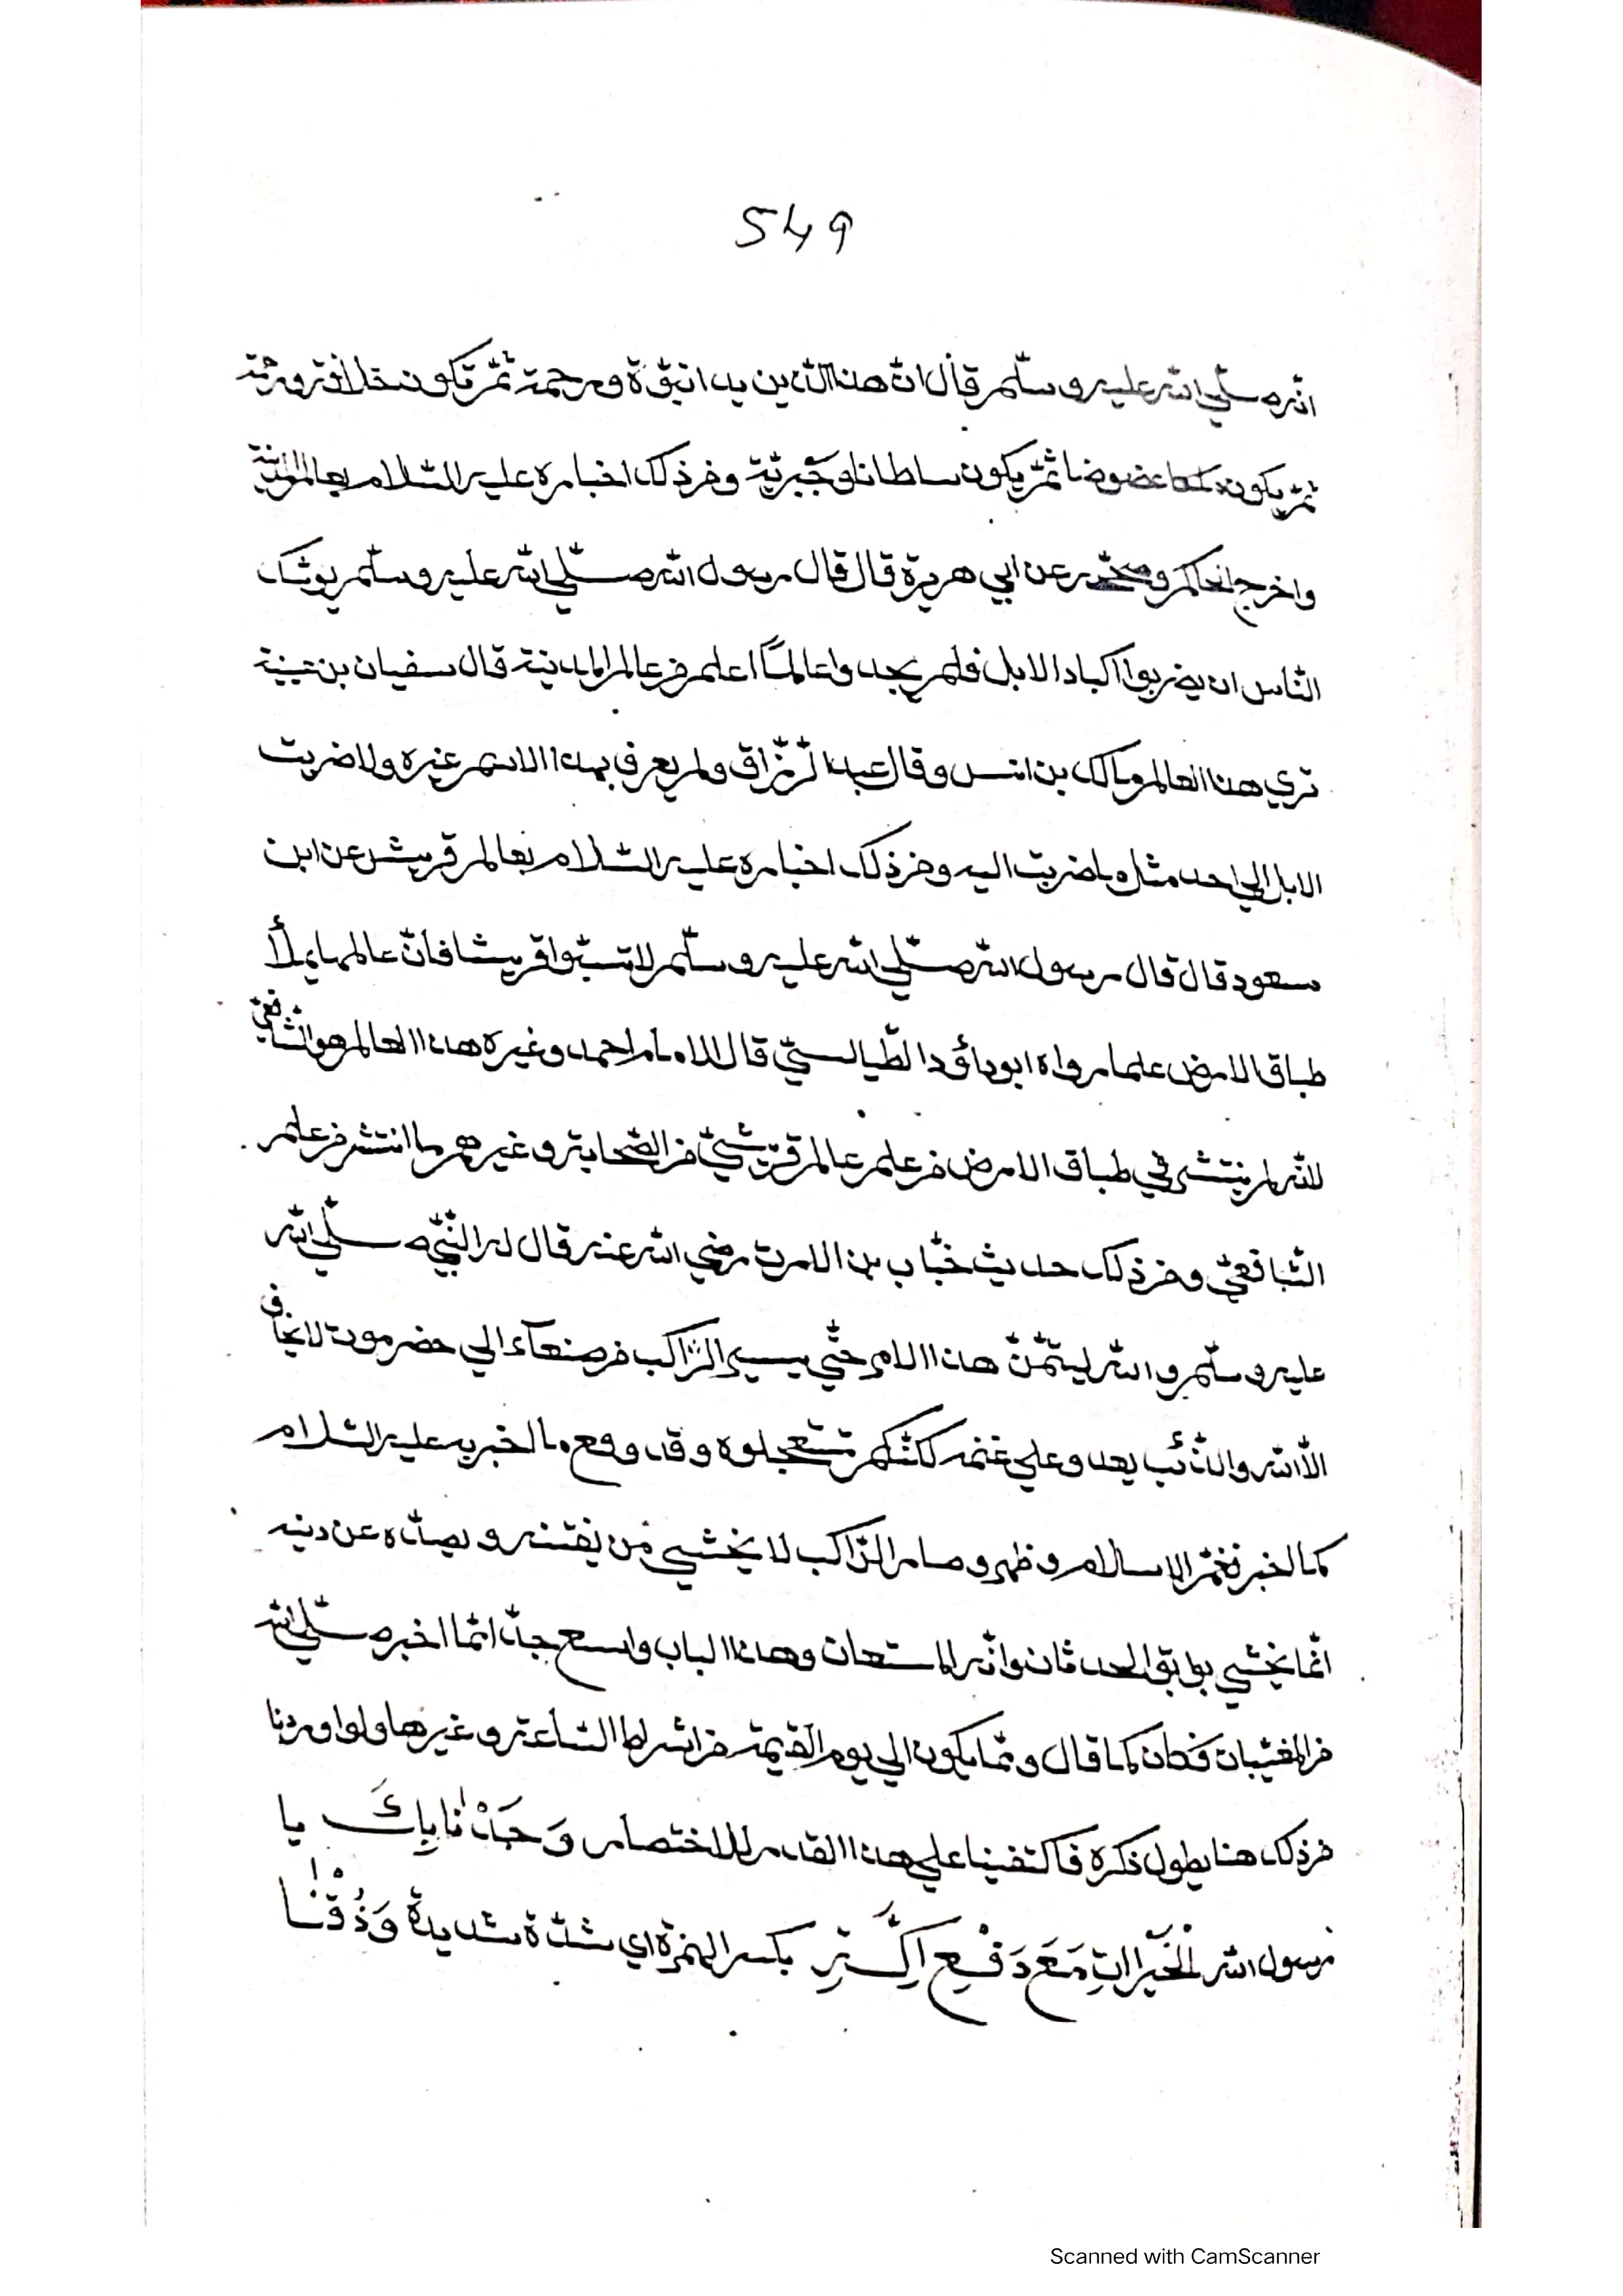 549
انه صلي الله عليه وسلم قال ان هذا الدين بدا نبوة ورحمة ثم تكون خلافة ورحمة
ثم يكون ملكا عضوضا ثم يكون سلطانا وجبرية ومن ذلك اخباره عليه السلام بعالم المدينة
واخرج الحاكم وصححه عن ابي هريرة قال قال رسول الله صلي الله عليه وسلم يوشك
الناس ان يضربوا اكباد الابل فلم يجدوا عالما اعلم من عالم المدينة قال سفيان بن عيينة
نري هذا العالم مالك بن انس وقال عبد الرزاق ولم يعرف بهذا الاسم غيره ولا ضربت
الابل الي احد مثل ما ضربت اليه ومن ذلك اخباره عليه السلام بعالم قريش عن ابن
مسعود قال قال رسول الله صلي الله عليه وسلم لا تسبوا قريشا فان عالمها يملأ
طباق الارض علما رواه ابو داؤد الطيالسي قال الامام احمد وغيره هذا العالم هو الشافعي
لانه لم ينتشر في طباق الارض من علم عالم قريشي من الصحابة وغيرهم ما انتشر من علم
الشافعي ومن ذلك حديث خباب بن الارت رضي الله عنه قال له النبي صلي الله
عليه وسلم والله ليتمن هذا الامر حتي يسير الراكب من صنعاء الي حضرموت لا يخاف
الا الله والذئب يعدو علي غنمه لكنكم تستعجلوه وقد وقع ما اخبر به عليه السلام
كما اخبر فتم الاسلام وظهر وصار الراكب لا يخشي من يفتنه ويصده عن دينه
انما يخشي بوايق الحدثان والله المستعان وهذا الباب واسع جدا انما اخبر صلي الله
من المغيبات فكان كما قال ومما يكون الي يوم القيمة من اشراط الساعة وغيرها ولو اوردنا
من ذلك هنا يطول ذكره فاكتفينا علي هذا القدر للاختصار وَجَدْنَا بِكَ يا
رسول الله الْخَيْرَاتِ مَعَ دَفْعِ اِكَّتِ بكسر الهمزة اي شدة شديدة وَذُقْنَا
Scanned with CamScanner